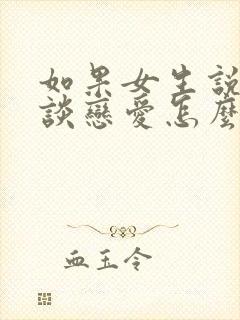 如果女生說
談戀愛怎麼
血玉令